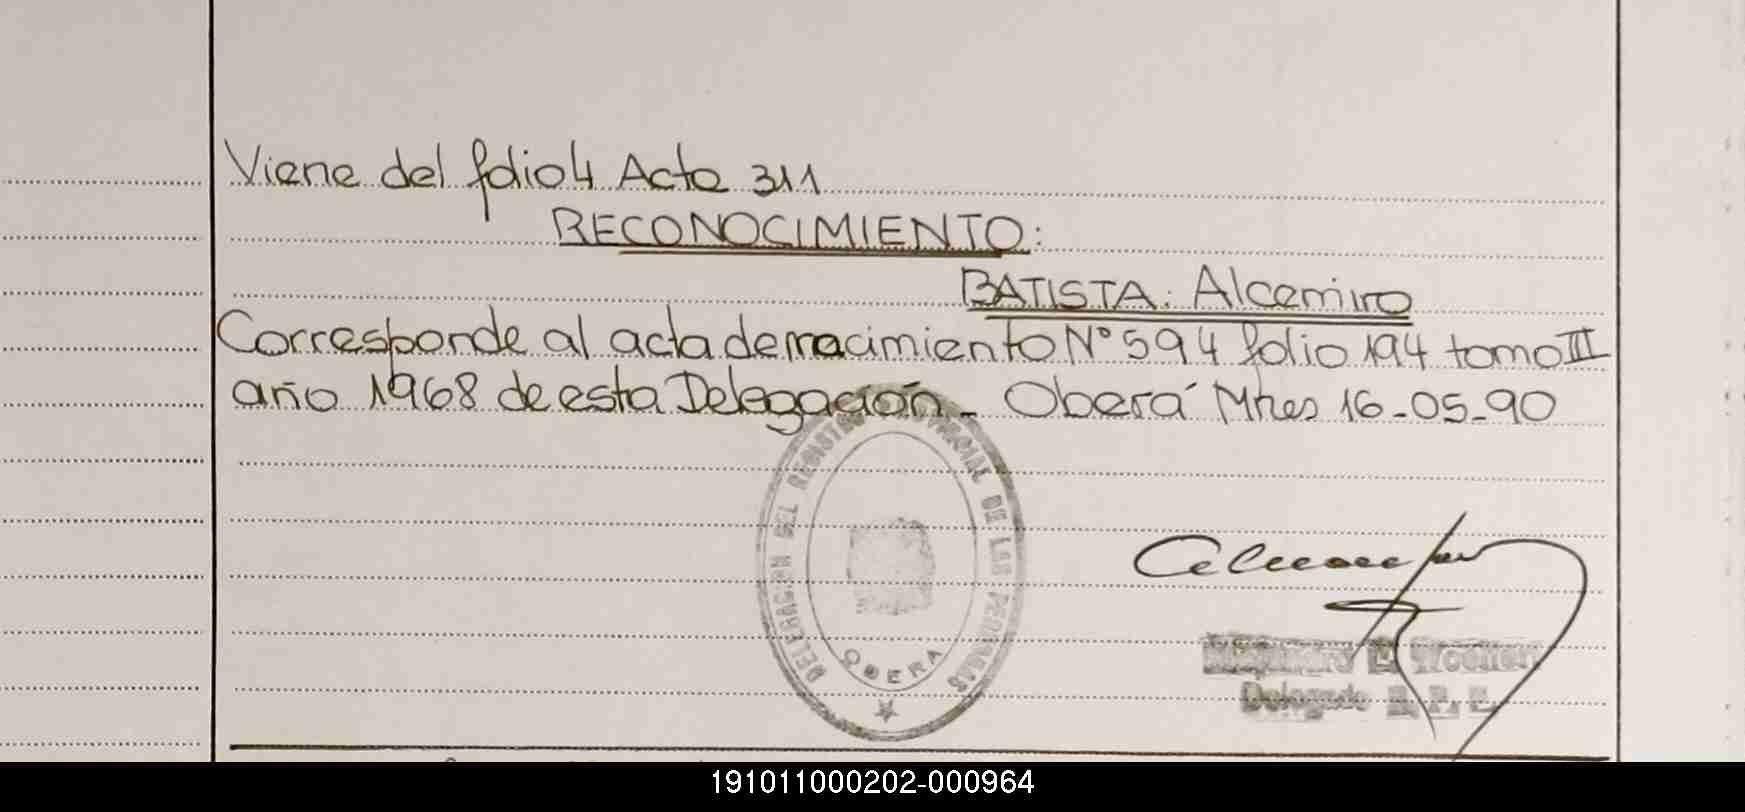 Viene del folio 4 Acta 311
RECONOCIMIENTO:
BATISTA: Alcemiro
Corresponde al acta de nacimiento Nº 594 folio 194 tomo III
año 1968 de esta Delegación - Oberá Mnes 16-05-90
DELEGACION DEL REGISTRO PROVINCIAL DE LAS PERSONAS
OBERA
Delegado R. P. P.
191011000202-000964